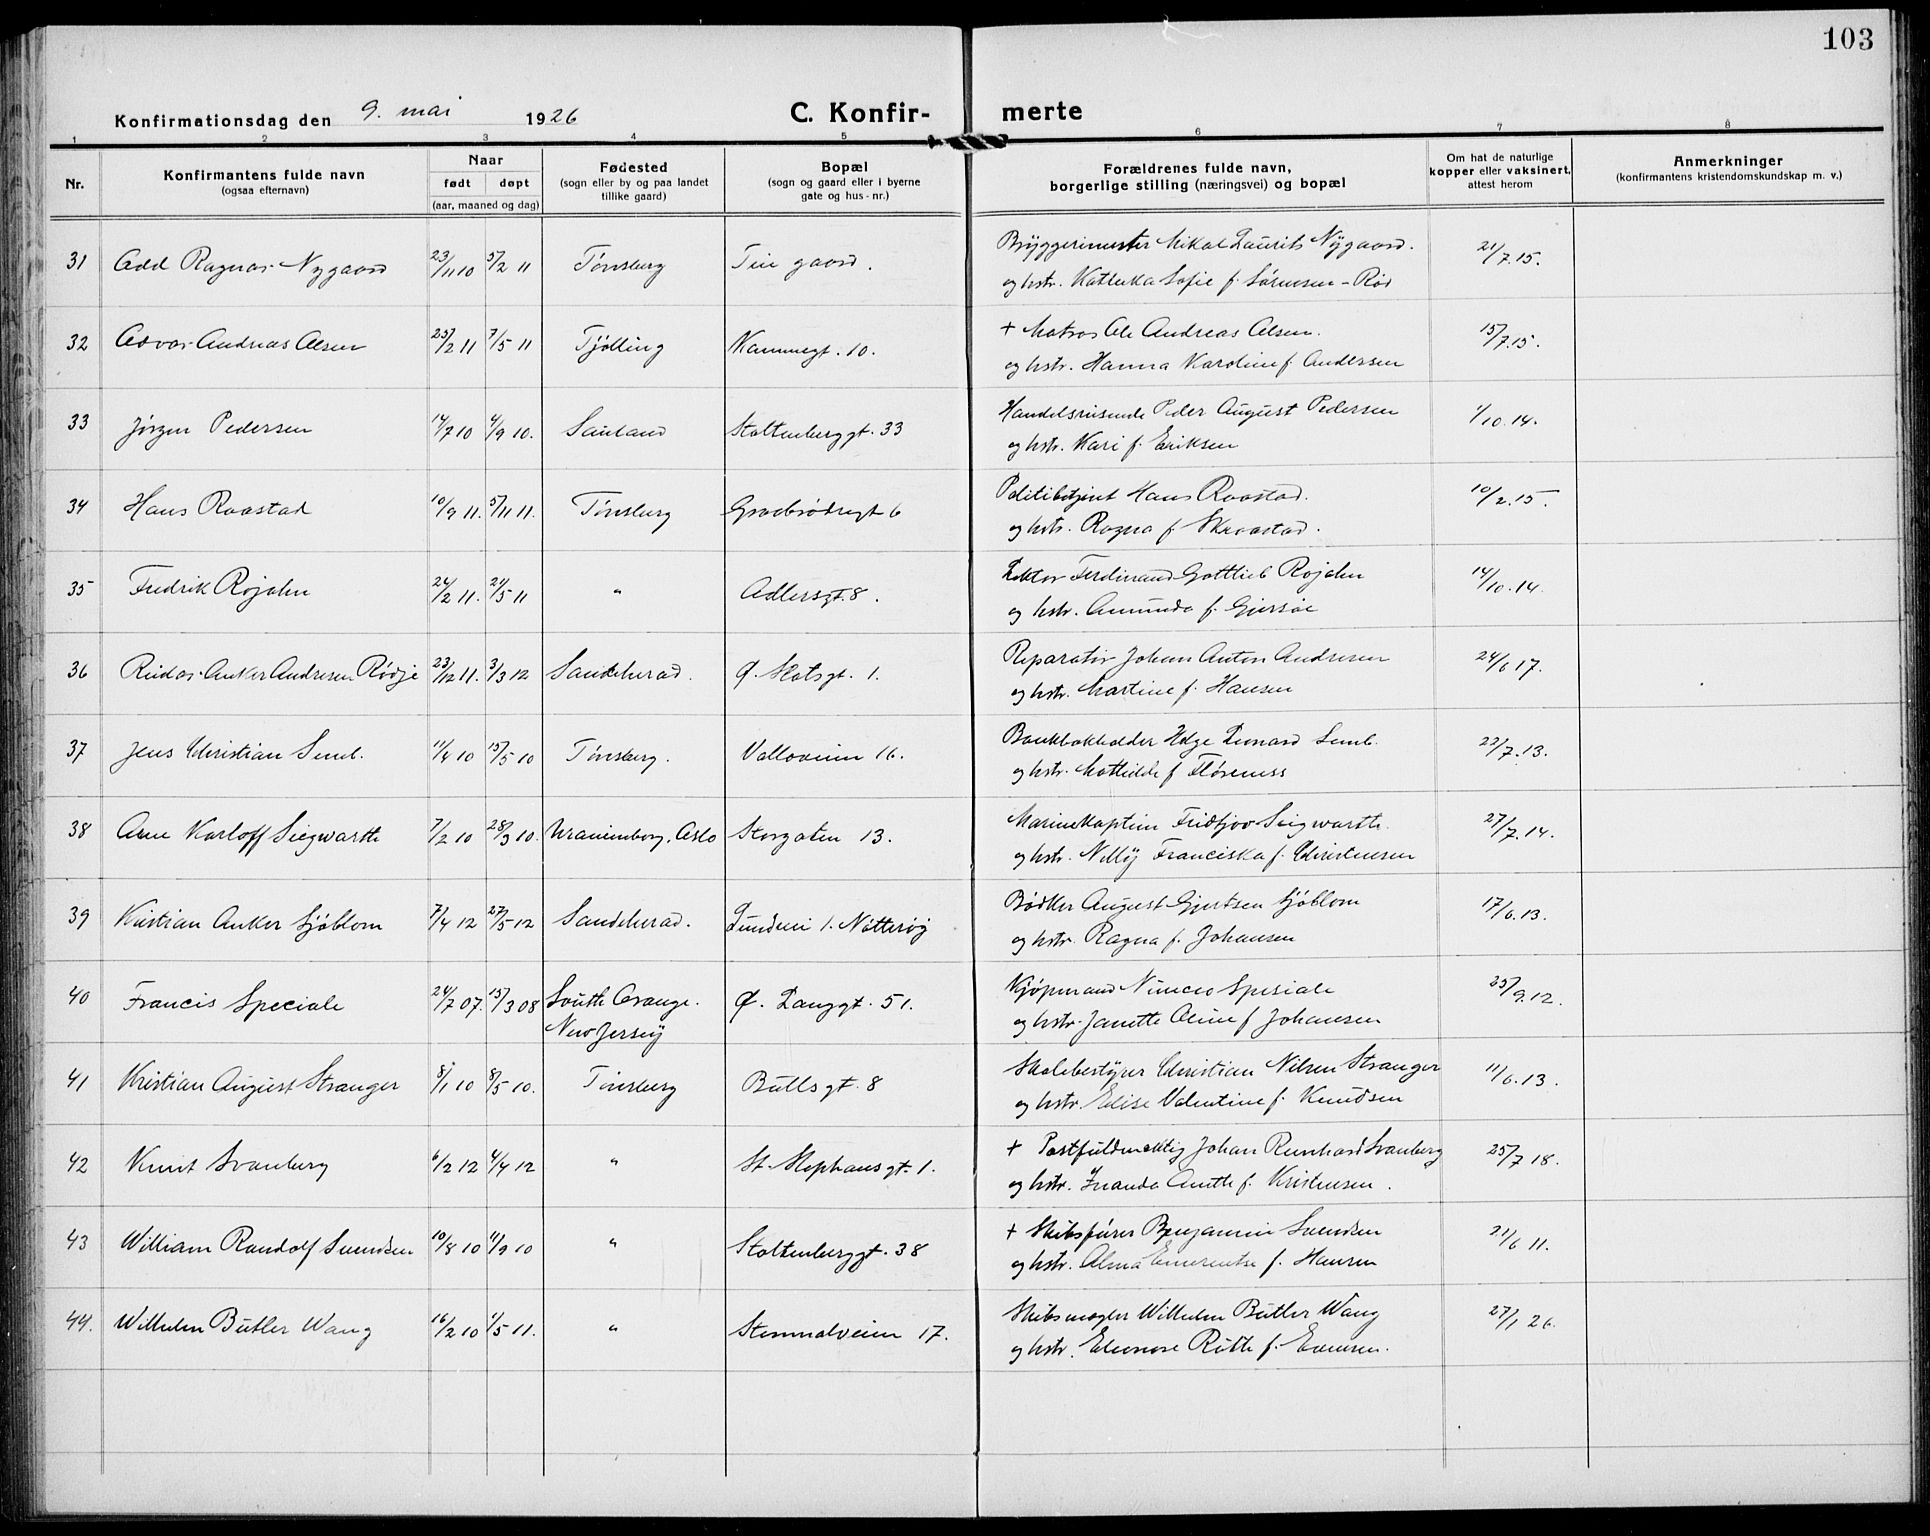 103
Konfirmationsdag den 9. mai 1926
C. Konfir-
merte
1 2 3 4 5 6 7 8
Nr.
Konfirmantens fulde navn
(ogsaa efternavn)
Naar
født døpt
(aar, maaned og dag)
Fødested
(sogn eller by og paa landet
tillike gaard)
Bopæl
(sogn og gaard eller i byerne
gate og hus-nr.)
Forældrenes fulde navn,
borgerlige stilling (næringsvei) og bopæl
Om hat de naturlige
kopper eller vaksinert,
attest herom
Anmerkninger
(konfirmantens kristendomskundskap m. v.)
31 Odd Ragnar Nygaard 23/11 10 5/2 11 Tønsberg Teie gaard. Bryggerimester Mikal Laurits Nygaard. 21/7.15.
og hstr. Kathinka Sofie f. Sørensen-Rød
32 Andreas Olsen 25/2 11 7/5 11 Tjølling Kammegt. 10. + Matros Ole Andreas Olsen. 15/7.15.
og hstr. Hanna Karoline f. Andersen
33 Jørgen Pedersen 14/7 10 4/9 10. Sauland Stoltenberggt. 33 Handelsreisende Peder August Pedersen 1/10.14.
og hstr. Kari f. Eriksen
34 Hans Raastad 10/9 11. 5/11 11. Tønsberg Graabrødregt 6 Politibetjent Hans Raastad. 10/2.15.
og hstr. Ragna f. Skraastad.
35 Fredrik Rojahn 24/2 11. 21/5 11 " Adlersgt. 8. Lektor Ferdinand Gottlieb Rojahn 14/10.14.
og hstr. Amunda f. Gjersøe
36 Reidar Anker Andresen Rødje 23/12 11. 3/3 12 Sandeherad. Ø. Slotsgt. 1. Reparatør Johan Anton Andresen 24/6 17.
og hstr. Martine f. Hansen
37 Jens Christian Semb. 11/4 10 15/5 10 Tønsberg. Valloveien 16. Bankbokholder Helge Leonard Semb. 22/7.13.
og hstr. Mathilde f.
38 Arne Karloff Siegwarth 7/2 10 28/3 10. Uranienborg, Oslo Storgaten 13. Marinekaptein Fridtjov Seigwarth. 27/7.14.
og hstr. Nelly Franciska f. Christensen
39 Kristian Anker Sjöblom 7/4 12 27/5 12 Sandeherad. 1. Nøtterøy Bødker August Gjertsen Sjöblom 17/6.13.
og hstr. Ragna f. Johansen
40 Francis Speciale 24/7 07. 15/3 08 South Orange. Ø. Langgt. 51. Kjøpmand Spesiale 25/9.12.
New Jersey og hstr. Janette Oline f Johansen
41 Kristian August Stranger 8/1 10 8/5 10. Tønsberg Bullsgt. 8 Skolebestyrer Christian Nilsen Stranger 11/6.13.
og hstr. Elise Valentine f. Knudsen
42 Knut Svanberg 6/2 12 4/4 12 " St. Stephansgt. 1. + Postfuldmektig Johan Reinhard Svanberg 25/7 18.
og hstr. Anette f. Kristensen.
43 William Randolf Svendsen 10/8 10 11/9 10 " Stoltenberggt. 38 + Skibsfører Benjamin Svendsen 21/6 11.
og hstr. Alma Emerentse f. Hansen
44. Wilhelm Butler Wang 16/2 10 1/5 11. " 17. Skibsmægler Wilhelm Butler Wang 27/1 26.
og hstr. Eleonore Ruth f. Evensen.